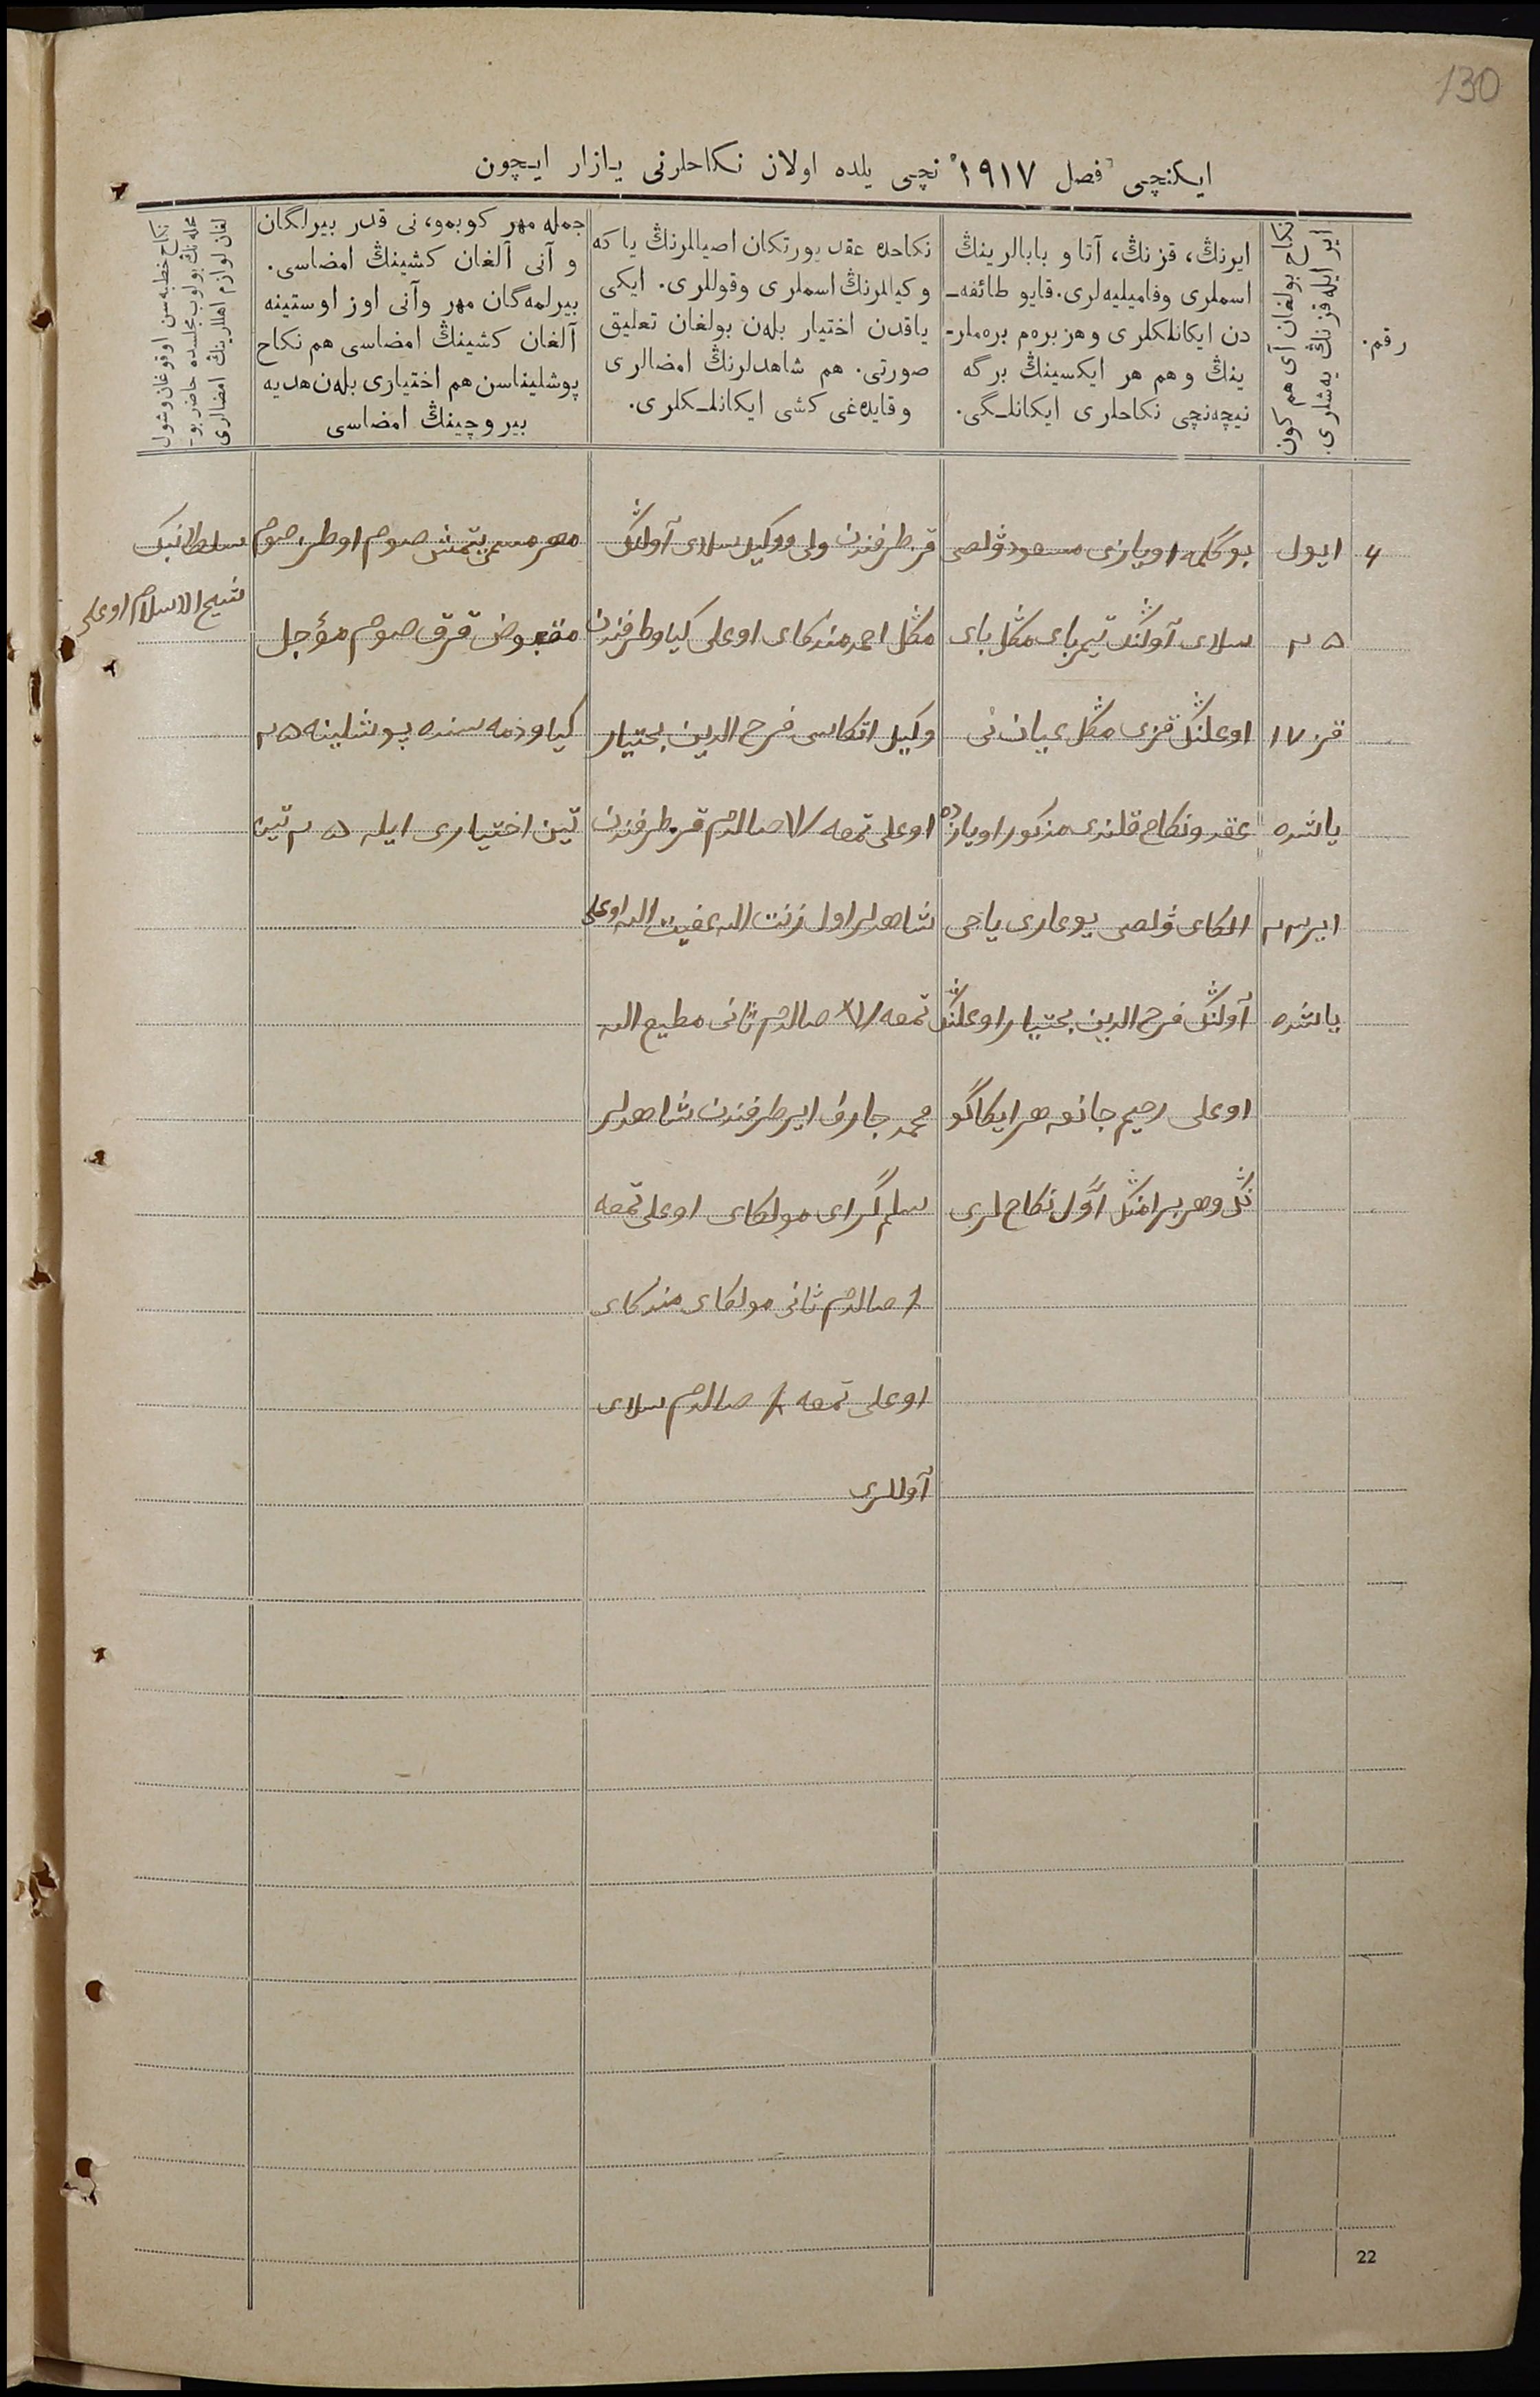 130
ایکنچی فصل ۱۹۱۷ نچی یلده اولان نکاحلرنی یازار ایچون
رقم.
نکاح بولغان آی هم کون
ایر ایله قزنڭ یه‌شلری.
ایرنڭ، قزنڭ، آتا و بابالرینڭ
اسملری وفامیلیه‌لری. قایو طائفه‌ـ
دن ایکانلکلری و هز برەم برەملرـ
ینڭ و هم هر ایکسینڭ برگه
نیچه‌نچی نکاحلری ایکانلـگی.
نکاحده عقد یورتکان اصیللرنڭ یا که
وکیللرنڭ اسملری وقوللری. ایکی
یاقدن اختیار بلەن بولغان تعلیق
صورتی. هم شاهدلرنڭ امضالری
وقایدەغی کشی ایکانلـکلری.
جمله مهر کوبمو، نی قدر بیرلگان
و آنی آلغان کشینڭ امضاسی.
بیرلمەگان مهر وآنی اوز اوستینه
آلغان کشینڭ امضاسی هم نکاح
پوشلیناسن هم اختیاری بلەن هدیه
بیروچینڭ امضاسی
نکاح خطبه‌سن اوقوغان وشول
محله‌نڭ بولوب مجلسده حاضر بوـ
لغان لوازم اهللرینڭ امضالری
۴
ایول
۲۵
قز ۱۷
یاشده
ایر ۲۳
یاشده
بوگلمه اویازی مسعود ۋلصی
سلای آولنڭ تیمربای منڭل بای
اوغلنڭ قزی منڭل عیان نی
عقد ونکاح قلندی مذکور اویازده
الکای ۋلصی یوغاری یاحی
آولنڭ فرح الدین بختیار اوغلنڭ
اوغلی رحیم جانغه هر ایکاگو
نڭ وهر برانڭ اوّل نکاح لری
قز طرفندن ولی ووکیل سلای آولنڭ
منڭل احمد مندکای اوغلی کیاو طرفندن
وکیل اتکاسی فرح الدین بختیار
اوغلی تمغه صالدم قز طرفندن
شاهدلر اول زنت الله عفیت الله اوغلی
تمغه صالدم ثانی مطیع الله
محمدجارف ایر طرفندن شاهدلر
سلم گرای مولکای اوغلی تمغه
صالدم ثانی مولکای مندکای
اوغلی تمغه صالدم سلای
آوللری
مهر مسمی یتمش صوم اوطز صوم
مقبوض قرق صوم مؤجل
کیاو ذمه سنده پوشلینه ۲۵
تین اختیاری ایله ۲۵ تین
سلطانبک
شیخ الاسلام اوغلی
22